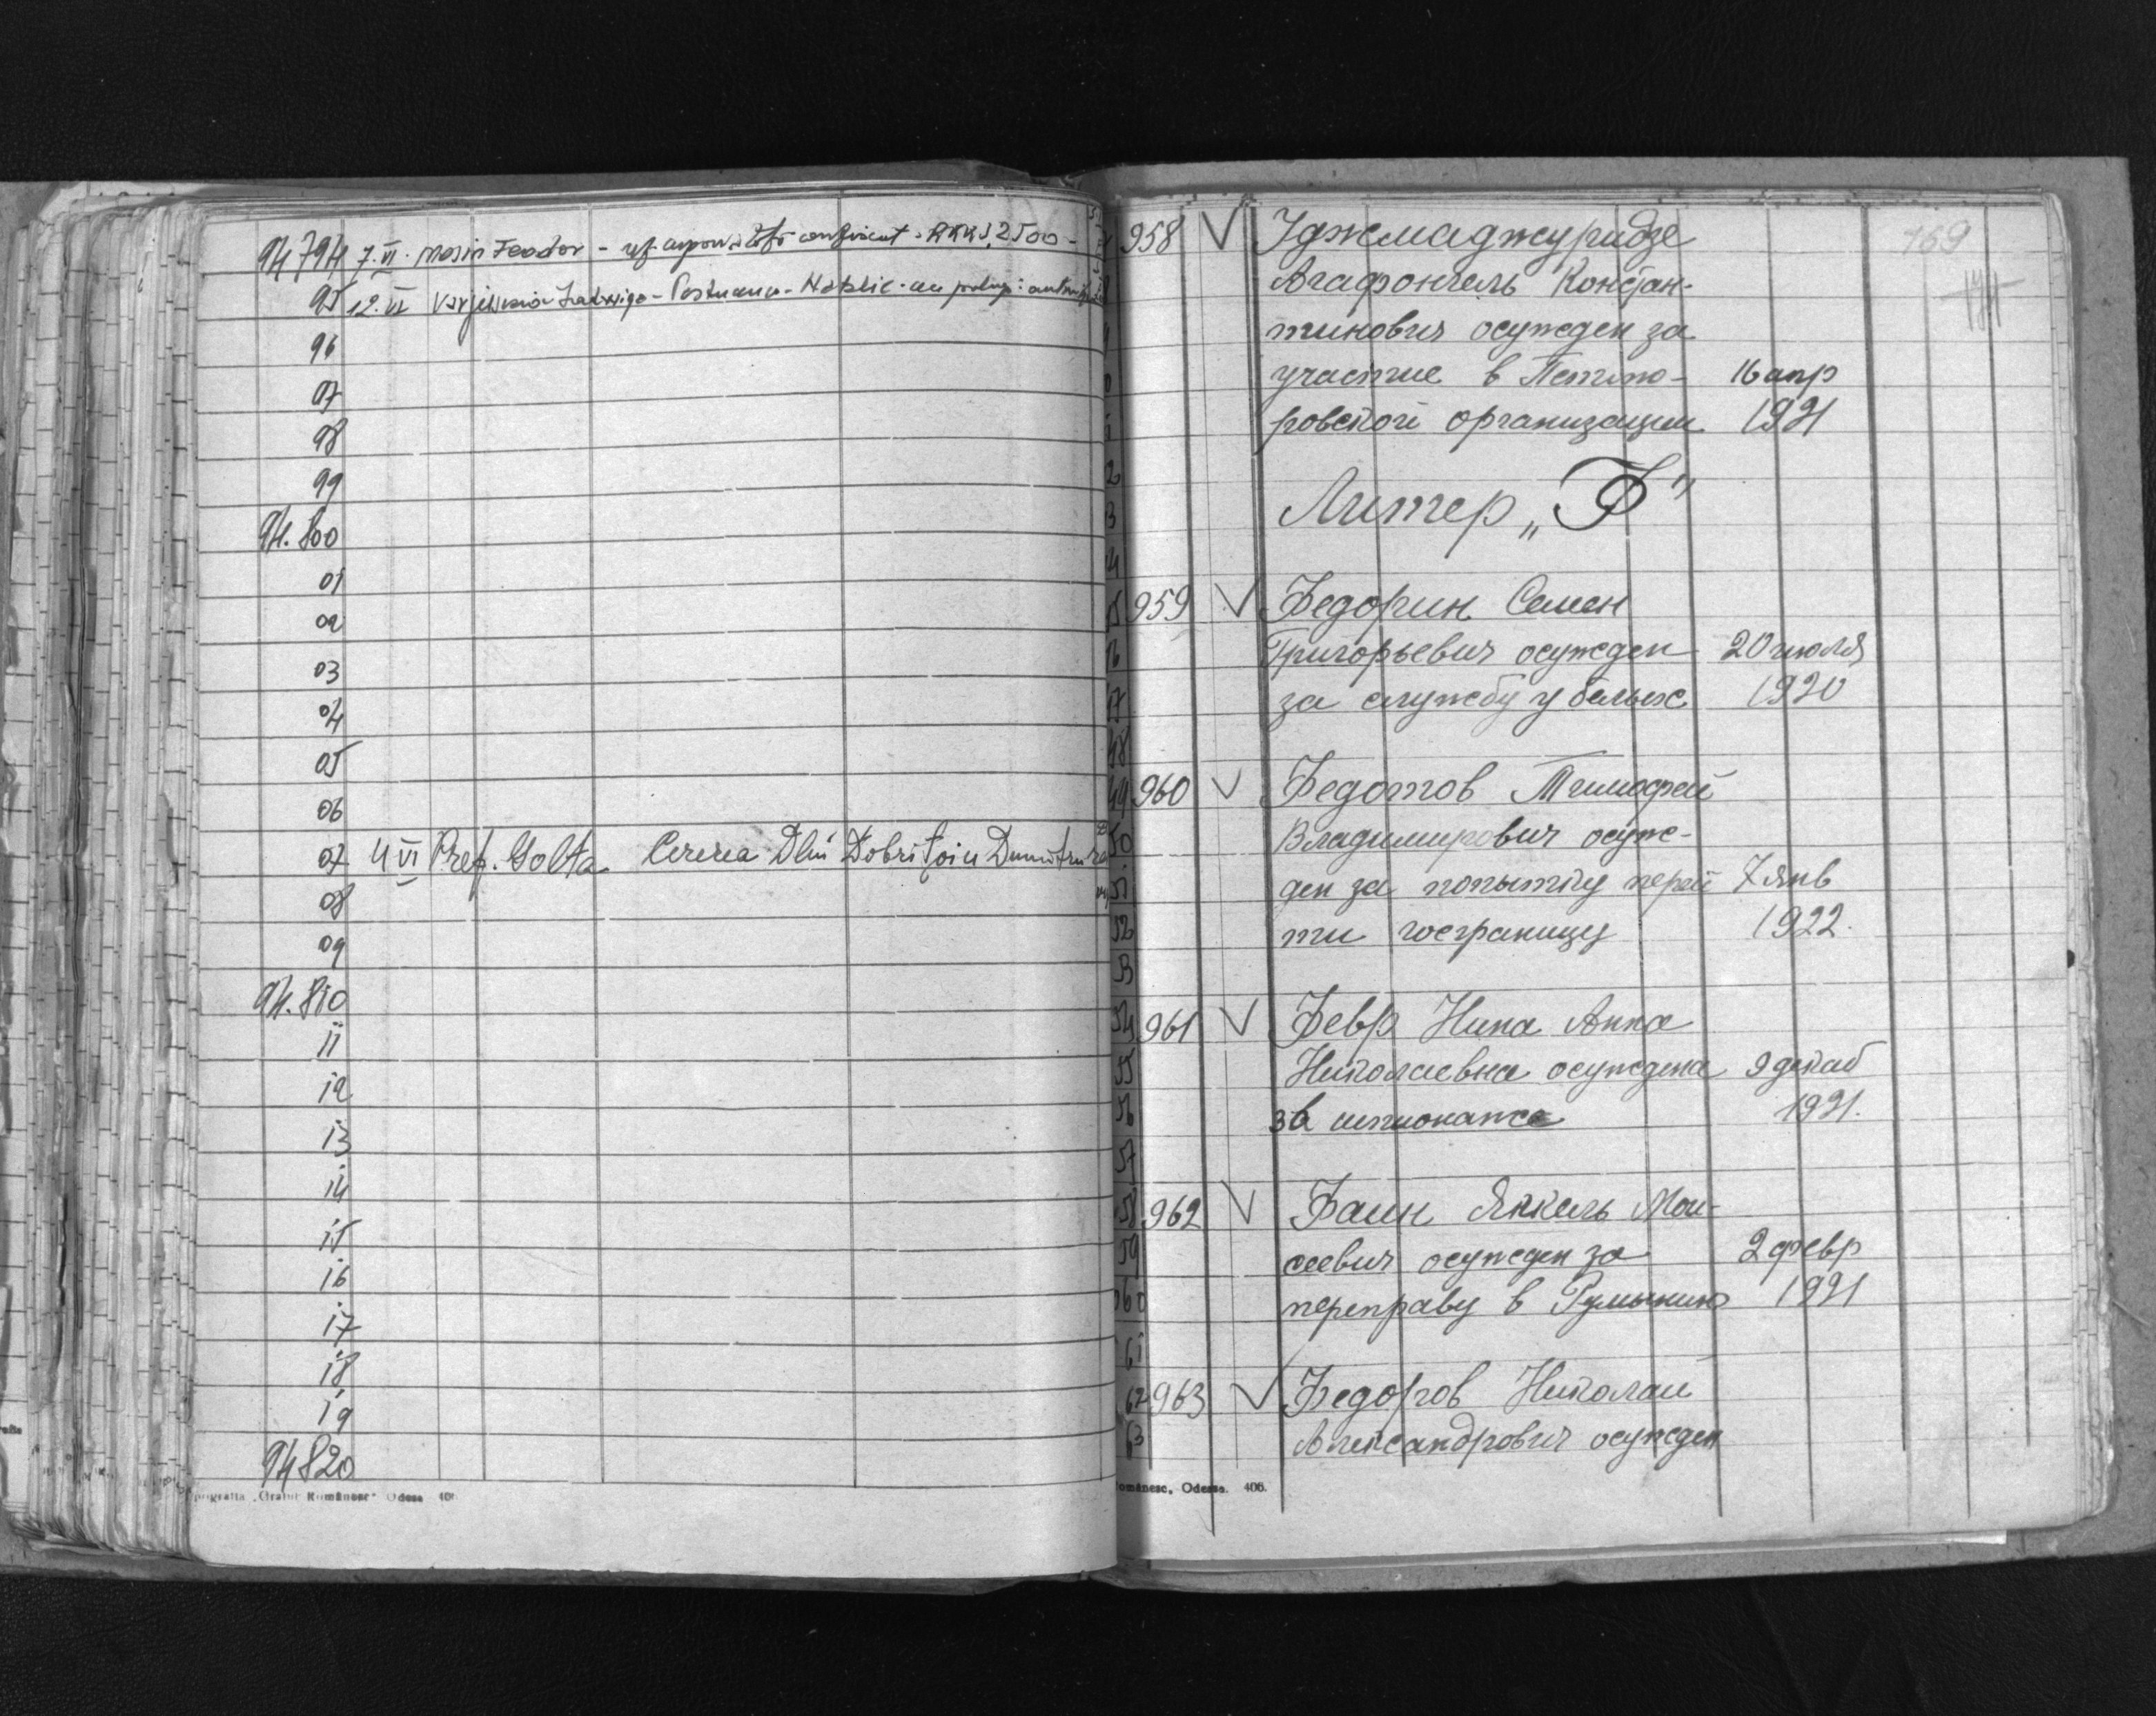 94794 7.VI. Mosin Feodor - 2500 -
95 12.VI
96
97
98
99
94.800
01
02
03
04
05
06
07 4 VI Pref. Golta Cererea Dlui Dobrițoiu Dumitru
08
09
94.810
11
12
13
14
15
16
17
18
19
94820
Tipografia „Graiul Românesc" Odesa 406
169
171
958 V Уджмаджуридзе
Агафонгель Констан-
тинович осужден за
участие в Петлю- 16 апр
ровской организации 1921
Литер „Ф"
959 V Федорин Семен
Григорьевич осужден 20 июля
за службу у белых 1920
960 V Федотов Тимофей
Владимирович осуж-
ден за попытку перей 7 янв
ти госграницу 1922.
961 V Февр Нина Анна
Николаевна осуждена 9 декаб
за шпионаж 1921.
962 V Фаин Янкель Мои-
сеевич осужден за 2 февр
переправу в Румынию 1921
963 V Федоров Николай
Александрович осужден
50
51
52
53
54
55
56
57
58
59
060
61
62
63
Românesc, Odessa. 406.